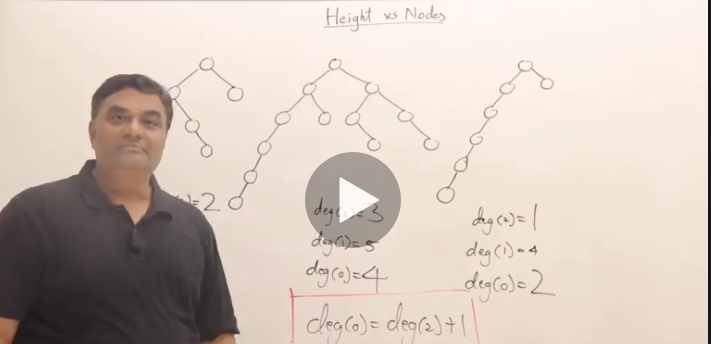 Height vs Nodes
)=2
deg(2)=3
deg(1)=5
deg(0)=4
deg(2)=1
deg(1)=4
deg(0)=2
deg(0)=deg(2)+1